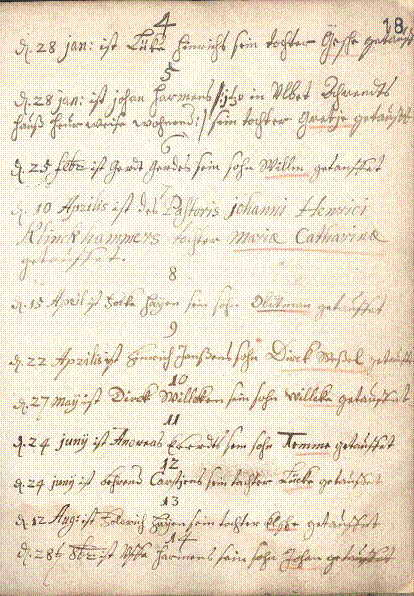 18
4
d. 28 jan: ist Lüke Hinrichs sein tochter Gesche getauft
5
d. 28 jan: ist johan harmens / jtzo in Ulbet Behrendts
hauß heur weise wohnend: / sein tochter Gretje getaufft
6
d. 25 febr ist Gerdt Gerdes sein sohn Willm getauffet
7
d. 10 Aprilis ist des Pastoris johanni Henrici
Klinckhammers tochter Maria Catharina
getauffet.
8
d. 15 April ist Focke Hayen sein sohn Oltman getauffet
9
d. 22 Aprilis ist Hinrich Janßens sohn Dirck Weßel getauft
10
d. 27 may ist Dirck Willcken sein sohn Willcke getauffet
11
d. 24 junÿ ist Andreas Everdts sein sohn Temme getauffet
12
d. 24 junÿ ist Behrend Carstjens sein tochter Lücke getauffet
13
d. 12 Aug: ist Hayen sein tochter Elsche getauffet
14
d. 28t 8br ist Harmens sein sohn Johan getauffet